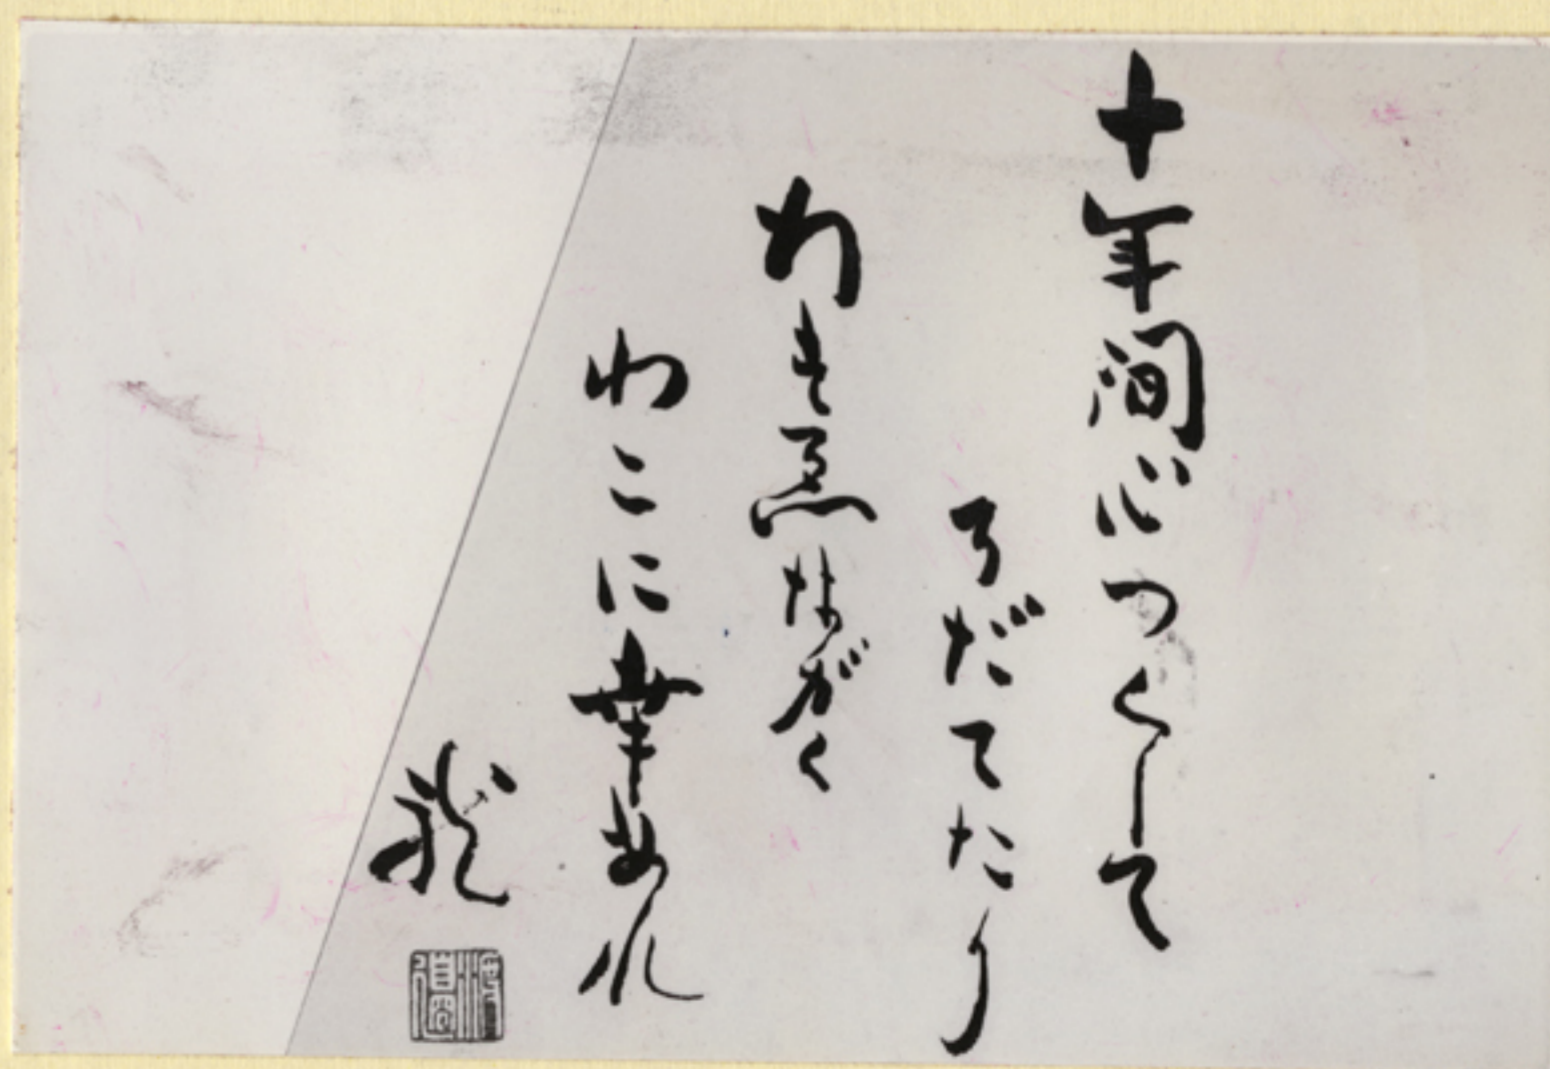 十年間心つくして
そだてたり
行すゑながく
わこに幸あれ
龍